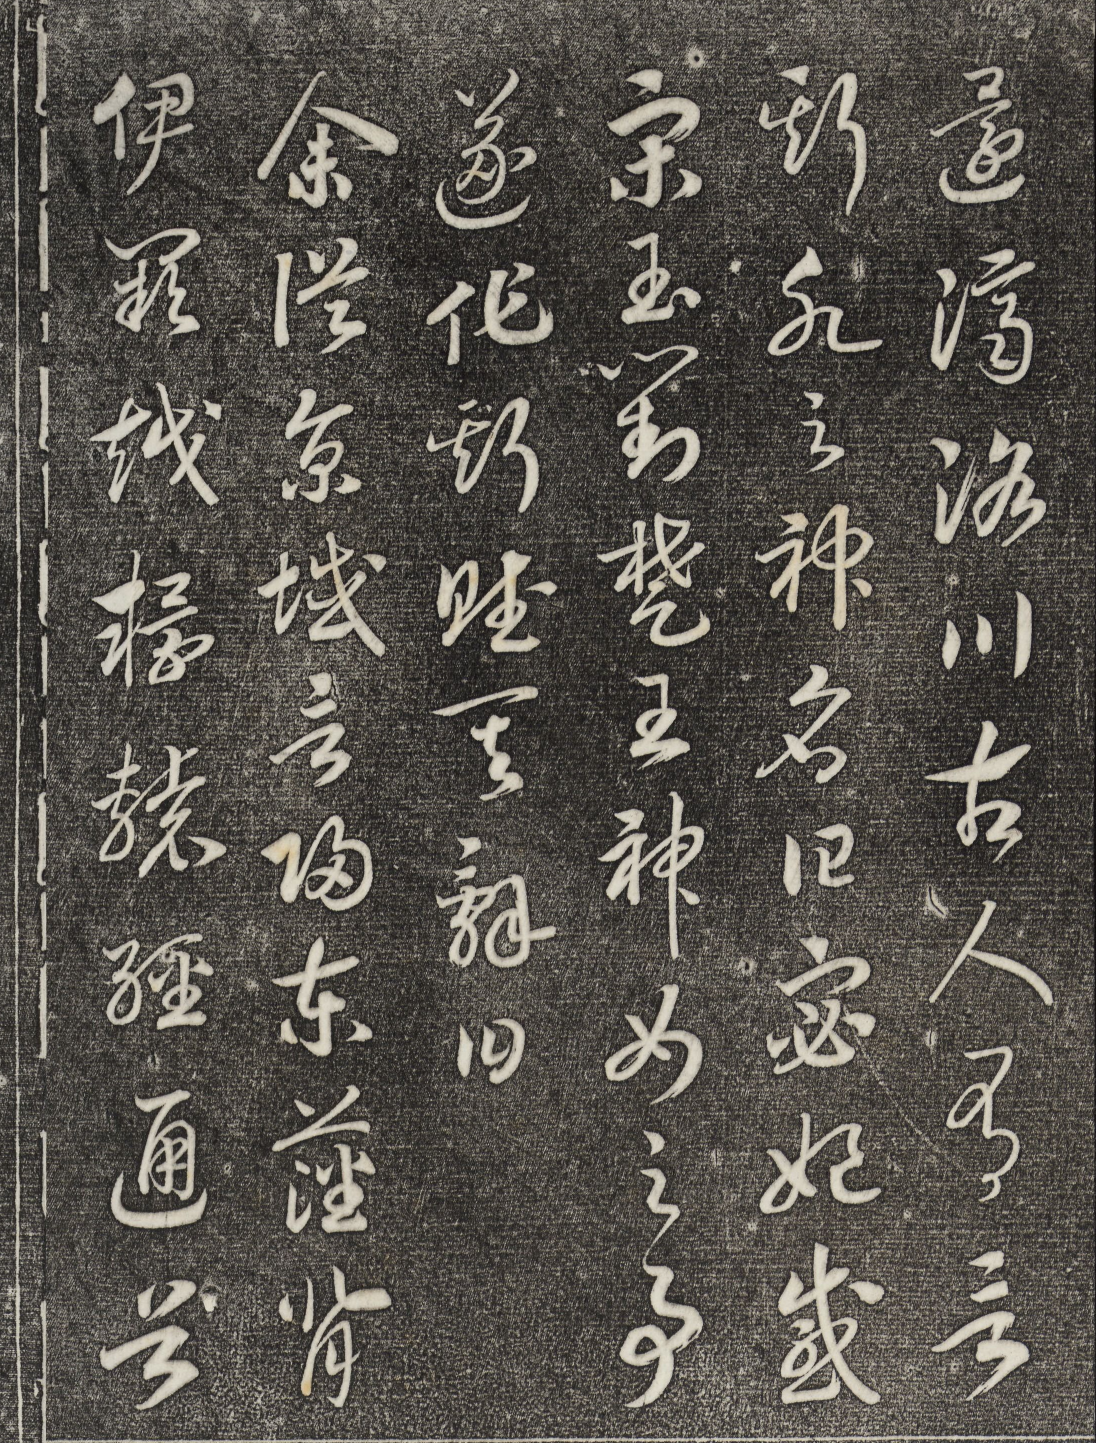 還濟洛川古人有言
斯水之神名曰宓妃感
宋玉對楚王神女之事
遂作斯賦其辭曰
余從京域言歸東藩背
伊闕越轘轅經通谷